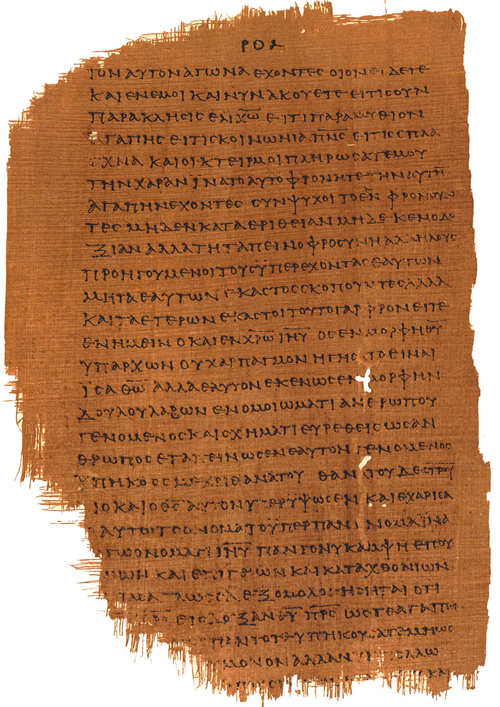 ΤΟΝ ΑΥΤΟΝ ΑΓΩΝΑ ΕΧΟΝΤΕΣ ΟΙΟΝ ΕΙΔΕΤΕ
ΚΑΙ ΕΝ ΕΜΟΙ ΚΑΙ ΝΥΝ ΑΚΟΥΕΤΕ ΕΙ ΤΙΣ ΟΥΝ
ΠΑΡΑΚΛΗΣΙΣ ΕΝ Χ̅Ω̅ ΕΙ ΤΙ ΠΑΡΑΜΥΘΙΟΝ
ΑΓΑΠΗΣ ΕΙ ΤΙΣ ΚΟΙΝΩΝΙΑ Π̅Ν̅Σ̅ ΕΙ ΤΙΣ ΣΠΛΑ
ΓΧΝΑ ΚΑΙ ΟΙΚΤΕΙΡΜΟΙ ΠΛΗΡΩΣΑΤΕ ΜΟΥ
ΤΗΝ ΧΑΡΑΝ ΙΝΑ ΤΟ ΑΥΤΟ ΦΡΟΝΗΤΕ ΤΗΝ ΑΥΤΗ
ΑΓΑΠΗΝ ΕΧΟΝΤΕΣ ΣΥΝΨΥΧΟΙ ΤΟ ΕΝ ΦΡΟΝΟΥΝ
ΤΕΣ ΜΗΔΕΝ ΚΑΤΑ ΕΡΙΘΕΙΑΝ ΜΗΔΕ ΚΕΝΟΔΟ
ΞΙΑΝ ΑΛΛΑ ΤΗ ΤΑΠΕΙΝΟΦΡΟΣΥΝΗ ΑΛΛΗΛΟΥΣ
ΠΡΟΗΓΟΥΜΕΝΟΙ ΤΟΥΣ ΥΠΕΡΕΧΟΝΤΑΣ ΕΑΥΤΩΝ
ΜΗ ΤΑ ΕΑΥΤΩΝ ΕΚΑΣΤΟΣ ΣΚΟΠΟΥΝΤΕΣ ΑΛΛΑ
ΚΑΙ ΤΑ ΕΤΕΡΩΝ ΕΚΑΣΤΟΙ ΤΟΥΤΟ ΓΑΡ ΦΡΟΝΕΙΤΕ
ΕΝ ΗΜΕΙΝ Ο ΚΑΙ ΕΝ Χ̅Ρ̅Ω̅ Ι̅Η̅Υ̅ ΟΣ ΕΝ ΜΟΡΦΗ ΘΥ
ΥΠΑΡΧΩΝ ΟΥΧ ΑΡΠΑΓΜΟΝ ΗΓΗΣΑΤΟ ΕΙΝΑΙ
ΙΣΑ Θ̅Ω̅ ΑΛΛΑ ΕΑΥΤΟΝ ΕΚΕΝΩΣΕΝ ΜΟΡΦΗΝ
ΔΟΥΛΟΥ ΛΑΒΩΝ ΕΝ ΟΜΟΙΩΜΑΤΙ ΑΝΘΡΩΠΟΥ
ΓΕΝΟΜΕΝΟΣ ΚΑΙ ΣΧΗΜΑΤΙ ΕΥΡΕΘΕΙΣ ΩΣ ΑΝ
ΘΡΩΠΟΣ ΕΤΑΠΕΙΝΩΣΕΝ ΕΑΥΤΟΝ ΓΕΝΟΜΕΝΟΣ
ΥΠΗΚΟΟΣ ΜΕΧΡΙ ΘΑΝΑΤΟΥ ΘΑΝΑΤΟΥ ΔΕ Σ̅Τ̅Ρ̅Ο̅Υ̅
ΔΙΟ ΚΑΙ Ο Θ̅Σ̅ ΑΥΤΟΝ ΥΠΕΡΥΨΩΣΕΝ ΚΑΙ ΕΧΑΡΙΣΑ
ΑΥΤΩ ΤΟ ΟΝΟΜΑ ΤΟ ΥΠΕΡ ΠΑΝ ΟΝΟΜΑ ΙΝΑ
ΤΩ ΟΝΟΜΑΤΙ Ι̅Η̅Υ̅ ΠΑΝ ΓΟΝΥ ΚΑΜΨΗ ΕΠΟΥ
ΝΙΩΝ ΚΑΙ ΕΠΙΓΕΙΩΝ ΚΑΙ ΚΑΤΑΧΘΟΝΙΩΝ
ΓΛΩΣΣΑ ΕΞΟΜΟΛΟΓΗΣΗΤΑΙ ΟΤΙ
ΕΙΣ ΔΟΞΑΝ Θ̅Υ̅ Π̅Ρ̅Σ̅ ΩΣΤΕ ΑΓΑΠΗ
ΠΑΝΤΟΤΕ ΥΠΗΚΟΥΣΑΤΕ ΜΗ ΩΣ
ΜΟΝΟΝ ΑΛΛΑ ΝΥΝ ΠΟΛΛΩ